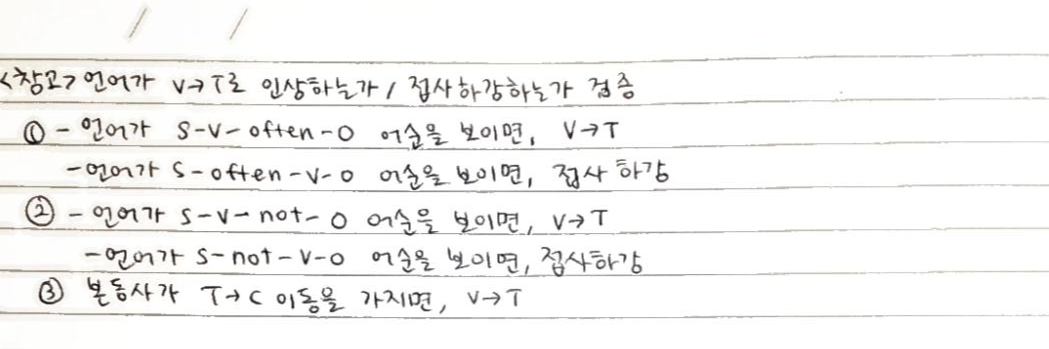 <참고> 언어가 V→T로 인상하는가 / 접사하강하는가 검증
① - 언어가 S-V-often-O 어순을 보이면, V→T
- 언어가 S-often-V-O 어순을 보이면, 접사 하강
② - 언어가 S-V-not-O 어순을 보이면, V→T
- 언어가 S-not-V-O 어순을 보이면, 접사하강
③ 본동사가 T→C 이동을 가지면, V→T